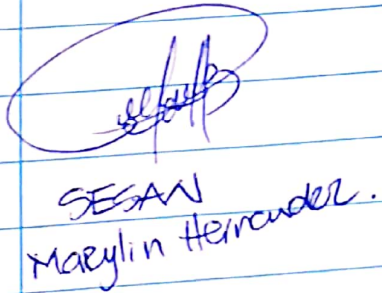 SESAN
Marylin Hernandez.